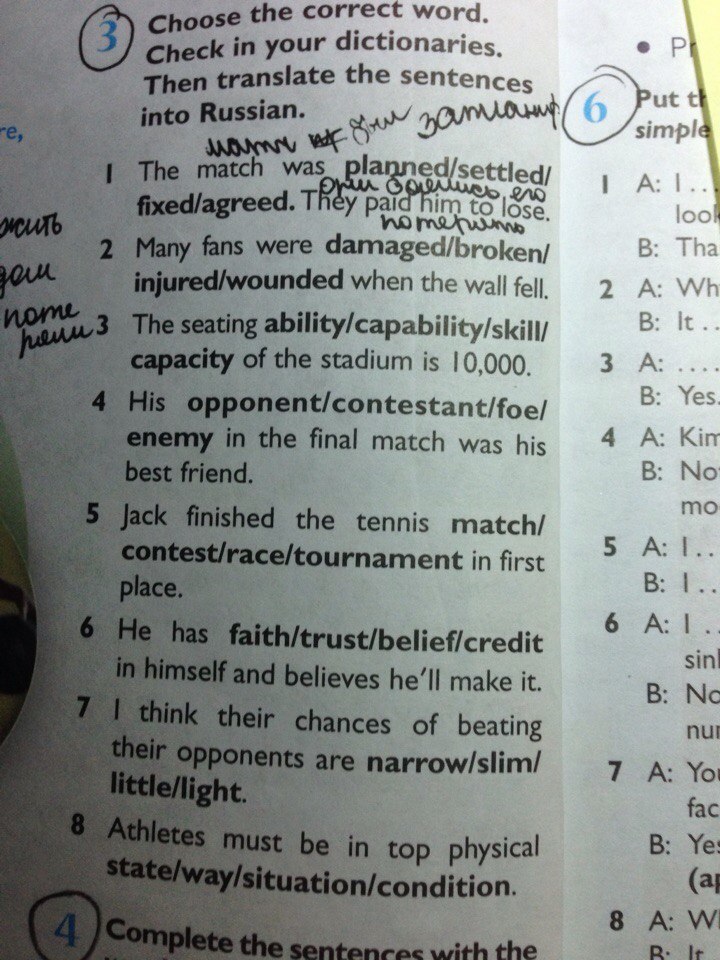 3 Choose the correct word.
Check in your dictionaries.
Then translate the sentences
into Russian.
1 The match was planned/settled/
fixed/agreed. They paid him to lose.
2 Many fans were damaged/broken/
injured/wounded when the wall fell.
3 The seating ability/capability/skill/
capacity of the stadium is 10,000.
4 His opponent/contestant/foe/
enemy in the final match was his
best friend.
5 Jack finished the tennis match/
contest/race/tournament in first
place.
6 He has faith/trust/belief/credit
in himself and believes he'll make it.
7 I think their chances of beating
their opponents are narrow/slim/
little/light.
8 Athletes must be in top physical
state/way/situation/condition.
4 Complete the sentences with the
re,
жить
• Pr
6 Put th
simple
1 A: I . .
look
B: Tha
2 A: Wh
B: It . .
3 A: . . . .
B: Yes.
4 A: Kim
B: No
mo
5 A: I . .
B: I . .
6 A: I . .
sink
B: No
nur
7 A: You
fac
B: Yes
(ap
8 A: Wh
B: It